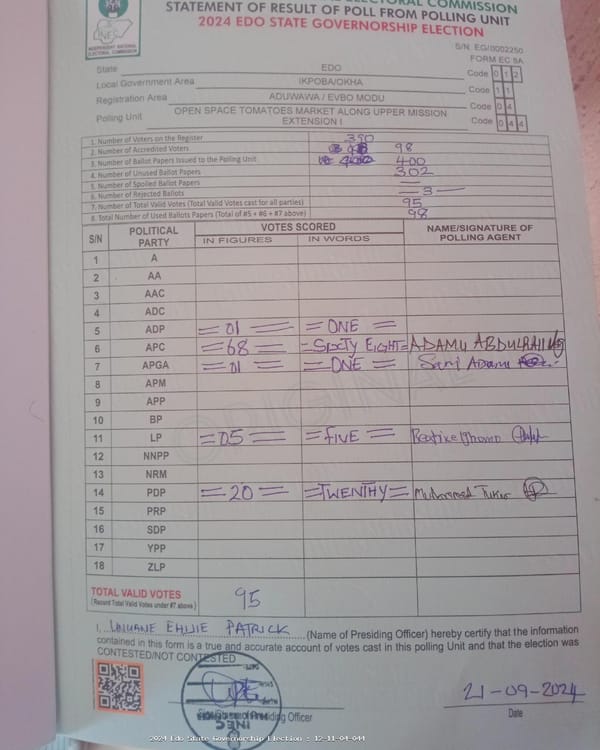 ELECTORAL COMMISSION
STATEMENT OF RESULT OF POLL FROM POLLING UNIT
2024 EDO STATE GOVERNORSHIP ELECTION
INEC
INDEPENDENT NATIONAL ELECTORAL COMMISSION
S/N: EG/0002250
FORM EC 8A
State EDO Code 0 1 2
Local Government Area IKPOBA/OKHA Code 1 1
Registration Area ADUWAWA / EVBO MODU Code 0 4
Polling Unit OPEN SPACE TOMATOES MARKET ALONG UPPER MISSION EXTENSION I Code 0 4 4
1. Number of Voters on the Register 390
2. Number of Accredited Voters 98
3. Number of Ballot Papers Issued to the Polling Unit 400
4. Number of Unused Ballot Papers 302
5. Number of Spoiled Ballot Papers —
6. Number of Rejected Ballots — 3 —
7. Number of Total Valid Votes (Total Valid Votes cast for all parties) 95
8. Total Number of Used Ballots Papers (Total of #5 + #6 + #7 above) 98
S/N POLITICAL PARTY VOTES SCORED NAME/SIGNATURE OF POLLING AGENT
IN FIGURES IN WORDS
1 A
2 AA
3 AAC
4 ADC
5 ADP = 01 = = ONE =
6 APC = 68 = = SIXTY EIGHT = ADAMU
7 APGA = 01 = = ONE = Sani Adamu
8 APM
9 APP
10 BP
11 LP = 05 = = FIVE =
12 NNPP
13 NRM
14 PDP = 20 = = TWENTHY =
15 PRP
16 SDP
17 YPP
18 ZLP
ORIGINAL
TOTAL VALID VOTES 95
(Record Total Valid Votes under #7 above)
I, EHIJIE PATRICK (Name of Presiding Officer) hereby certify that the information
contained in this form is a true and accurate account of votes cast in this polling Unit and that the election was
CONTESTED/NOT CONTESTED
Presiding Officer
INEC
21-09-2024
Date
2024 Edo State Governorship Election : 12-11-04-044